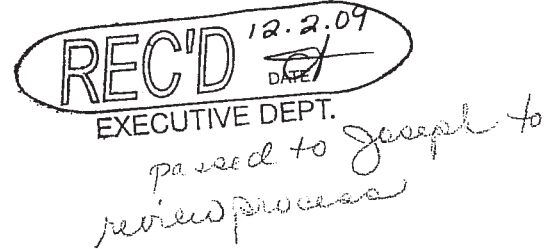 REC'D 12.2.09
DATE
EXECUTIVE DEPT.
passed to Joseph to
review process